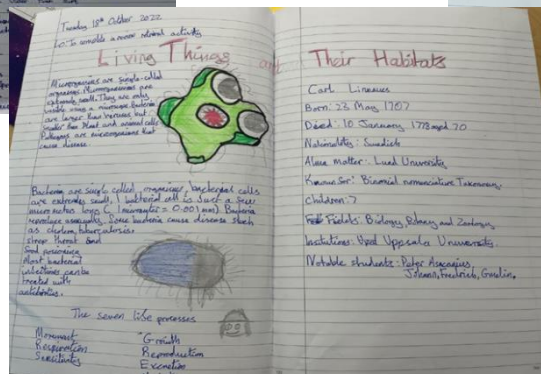 Tuesday 18th October 2022
L.O: To complete a
Living Things and Their Habitats
Microorganisms are single-celled
organisms. Microorganisms are
extremely small. They are only
visible using a microscope. Bacteria
are larger than
smaller than Plant and animal cells
Pathogens are microorganisms that
cause disease.
Bacteria are single celled bacterial cells
are extremely small, 1 bacterial cell is just a few
long (1 = 0.001 mm) Bacteria
reproduce Some bacteria cause disease such
as
throat and
food poisoning
Most bacterial
can be
treated with
The seven life processes
Movement
Respiration
Sensitivity
Growth
Reproduction
Excretion
Carl
Born: 23 May 1707
Died: 10 January 1778 aged 70
Swedish
Alma Matter: Lund University
Known for: Binomial Taxonomy
Children: 7
Fields: Biology, Botany and Zoology
Uppsala University.
Notable students: Peter
Johann, Fredrick,